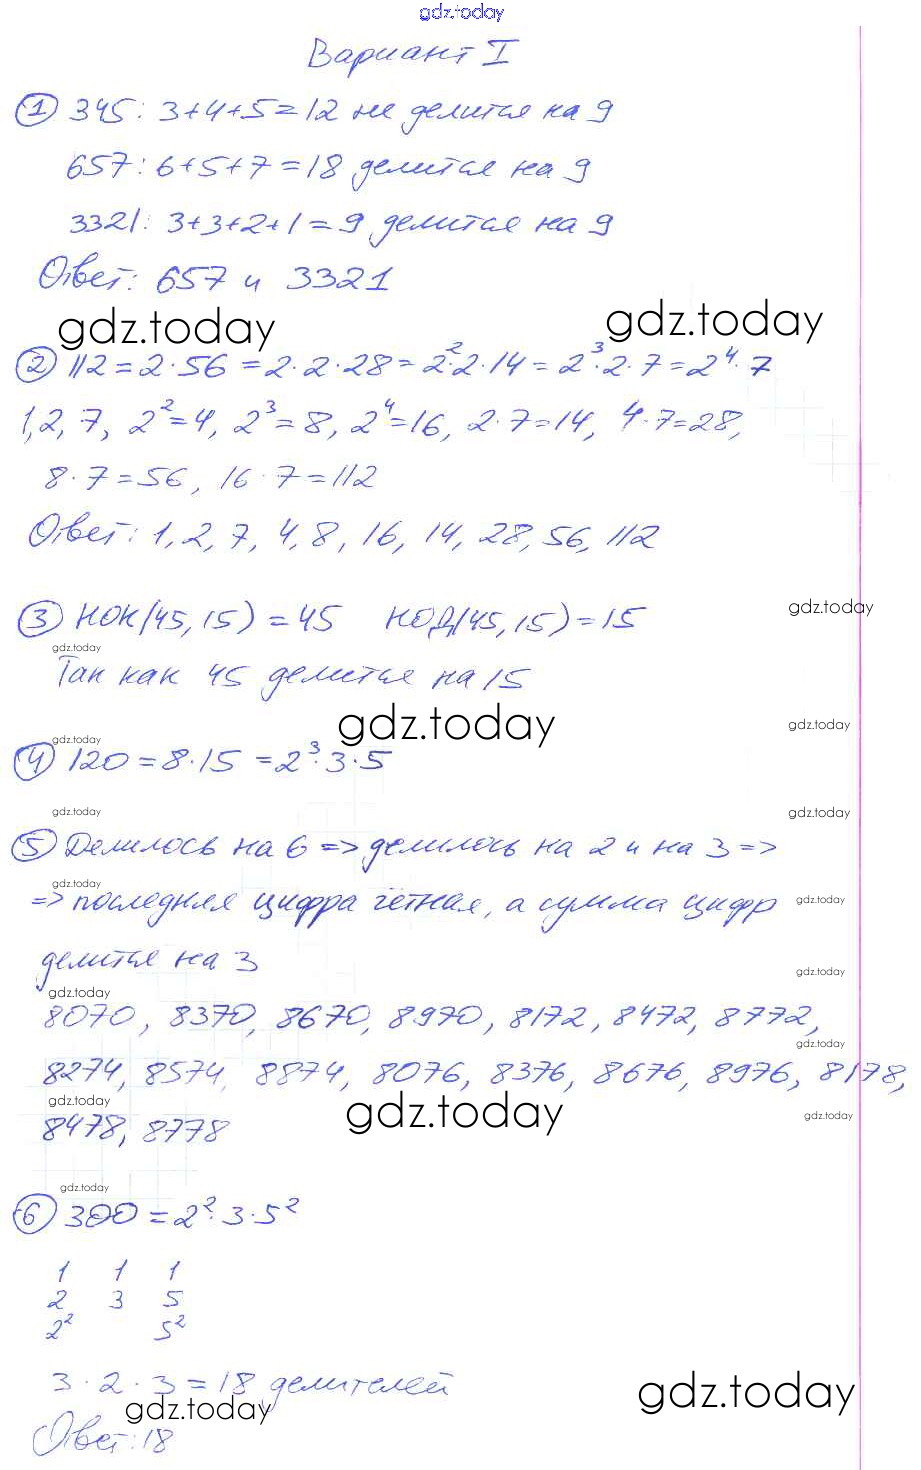 gdz.today
Вариант I
① 345: 3+4+5=12 не делится на 9
657: 6+5+7=18 делится на 9
3321: 3+3+2+1=9 делится на 9
Ответ: 657 и 3321
gdz.today gdz.today
② 112=2·56=2·2·28=2²·2·14=2³·2·7=2⁴·7
1, 2, 7, 2²=4, 2³=8, 2⁴=16, 2·7=14, 4·7=28,
8·7=56, 16·7=112
Ответ: 1, 2, 7, 4, 8, 16, 14, 28, 56, 112
gdz.today
③ НОК(45,15)=45 НОД(45,15)=15
gdz.today
Так как 45 делится на 15
gdz.today gdz.today
gdz.today
④ 120=8·15=2³·3·5
gdz.today gdz.today
⑤ Делилось на 6 => делилось на 2 и на 3 =>
gdz.today
=> последняя цифра чётная, а сумма цифр
gdz.today
делится на 3
gdz.today
gdz.today
8070, 8370, 8670, 8970, 8172, 8472, 8772,
gdz.today
8274, 8574, 8874, 8076, 8376, 8676, 8976, 8178,
gdz.today gdz.today gdz.today
8478, 8778
gdz.today
⑥ 300=2²·3·5²
1 1 1
2 3 5
2² 5²
3·2·3=18 делителей
gdz.today gdz.today
Ответ: 18